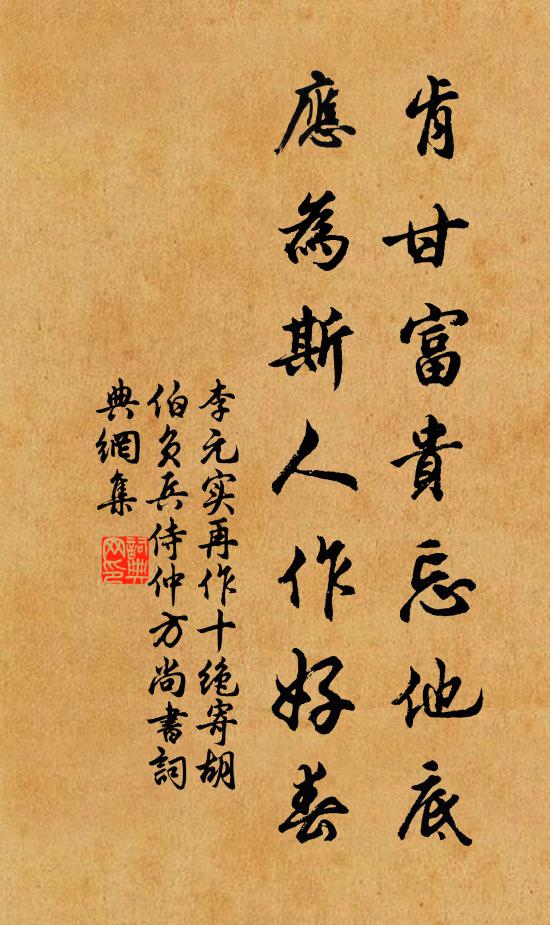 肯甘富貴忘他底
應為斯人作好春
李元实再作十绝寄胡
伯負兵侍仲方尚書詞
典網集
詞典网印